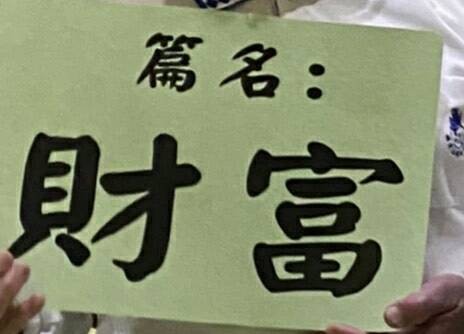 篇名：
財富